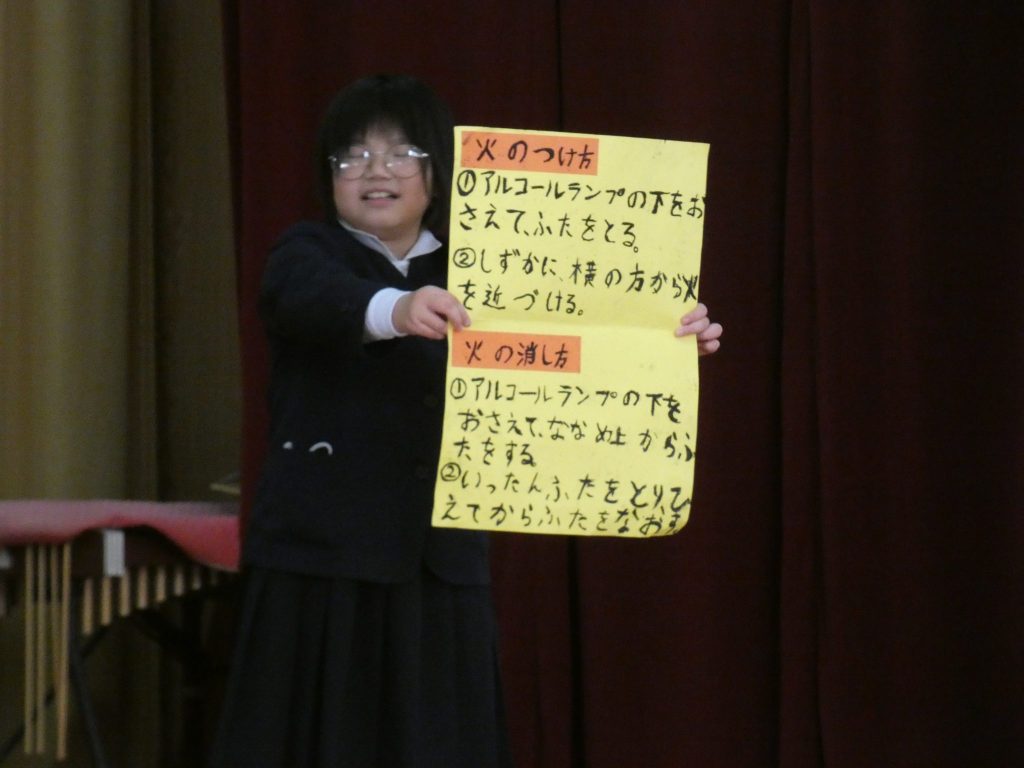 火のつけ方
①アルコールランプの下をお
さえて、ふたをとる。
②しずかに、横の方から火
を近づける。
火の消し方
①アルコールランプの下を
おさえて、ななめ上からふ
たをする。
②いったんふたをとり、ひ
えてからふたをなおす